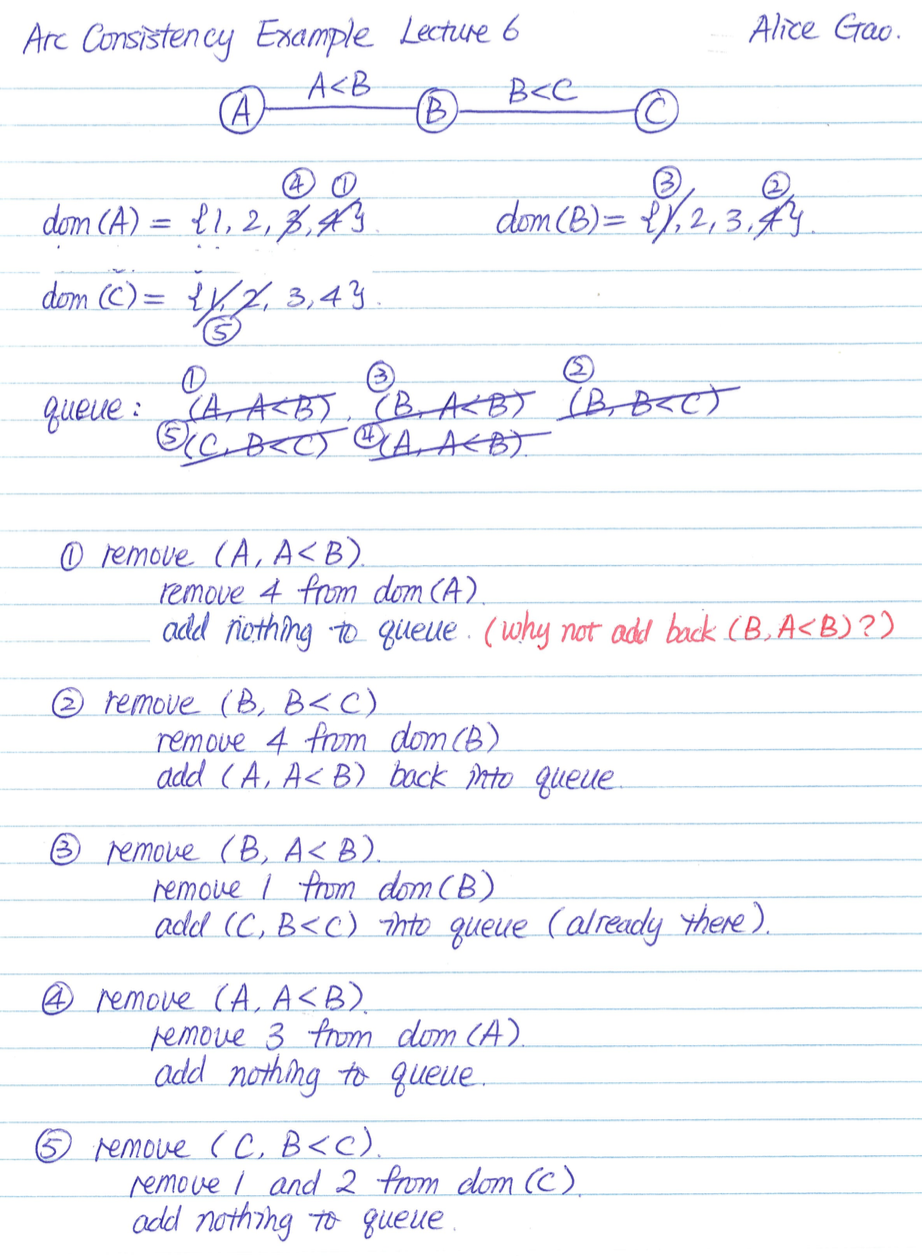 Arc Consistency Example Lecture 6 Alice Gao.
A<B B<C
A B C
④ ① ③ ②
dom(A) = {1, 2, 3, 4} dom(B) = {1, 2, 3, 4}.
dom(C) = {1, 2, 3, 4}.
⑤
① ③ ②
queue: (A, A<B), (B, A<B) (B, B<C)
⑤(C, B<C) ④(A, A<B).
① remove (A, A<B).
remove 4 from dom(A).
add nothing to queue. (why not add back (B, A<B)?)
② remove (B, B<C)
remove 4 from dom(B)
add (A, A<B) back into queue.
③ remove (B, A<B).
remove 1 from dom(B)
add (C, B<C) into queue (already there).
④ remove (A, A<B).
remove 3 from dom(A).
add nothing to queue.
⑤ remove (C, B<C).
remove 1 and 2 from dom(C).
add nothing to queue.